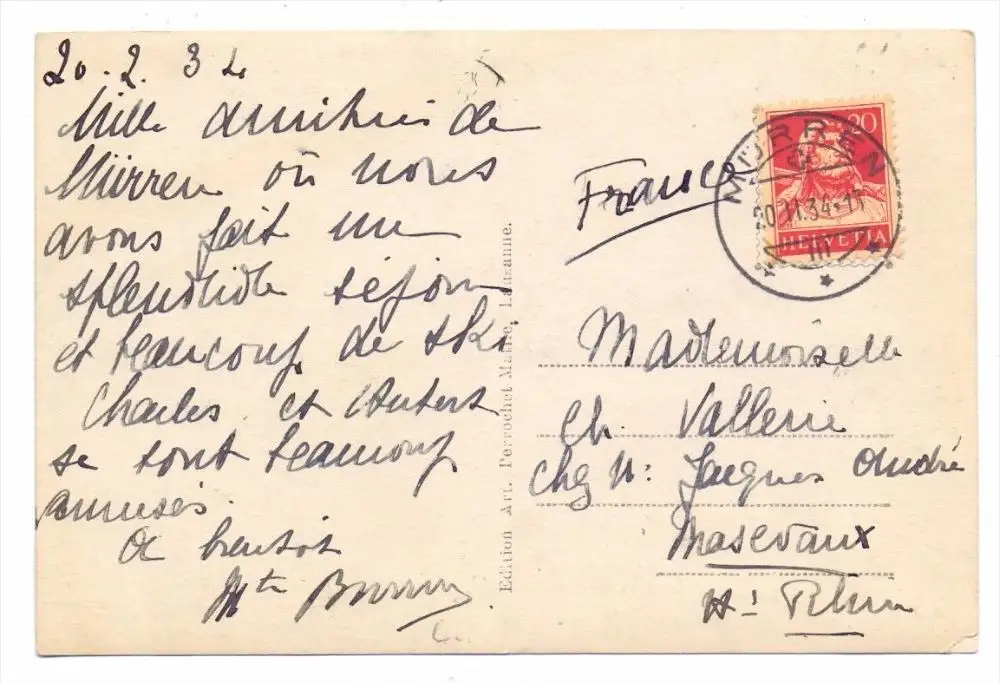 20.2.34
Mille amitiés de
Mürren où nous
avons fait un
splendide séjour
et beaucoup de ski
Charles et Hubert
se sont beaucoup
amusés.
A bientôt
Mte
Edition Art. Perrochet Matile, Lausanne.
France
20
MÜRREN
20.II.34-17
HELVETIA
Mademoiselle
Ch. Vallerie
chez M: Jacques André
Masevaux
Ht Rhin